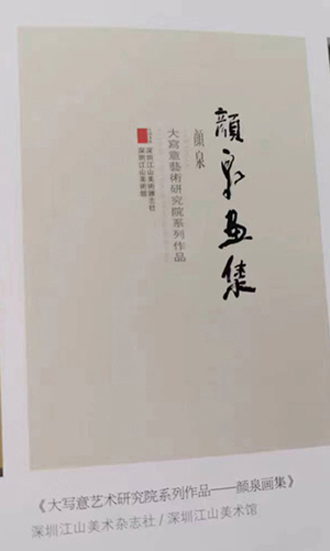 顔泉画集
顔泉
大寫意藝術研究院系列作品
深圳江山美術雜志社
深圳江山美術館
《大写意艺术研究院系列作品——颜泉画集》
深圳江山美术杂志社/深圳江山美术馆